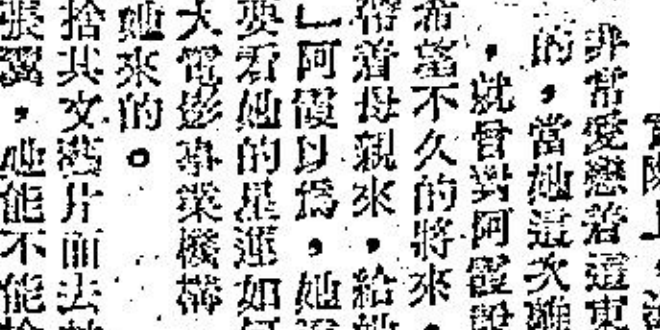 實際上，
非常愛戀着這東
的，當她這次離
，就曾對阿霞說
希望不久的將來，
帶着母親來，給她
」阿霞以爲，她
要看她的星運如何
大電影事業機構
她來的。
捨其文藝片而去
張翼，她能不能